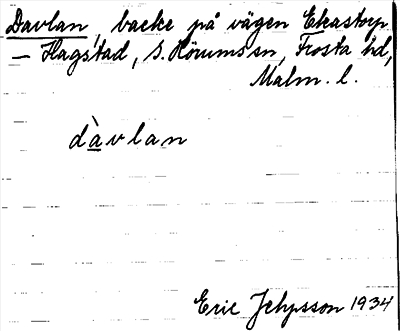 Davlan, backe på vägen Ekastorp
– Hagstad, S. Rörums sn, Frosta hd,
Malm. l.
dàvlan
Eric Jehpsson 1934